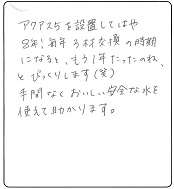 アクアス5を設置してはや
8年!毎年ろ材交換の時期
になると、もう1年たったのね、
とびっくりします(笑)
手間なくおいしい安全な水を
使えて助かります。